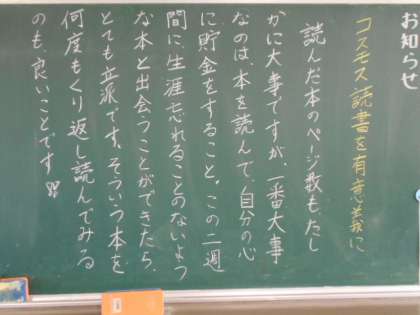 お知らせ
コスモス読書を有意義に
読んだ本のページ数も、たし
かに大事ですが、一番大事
なのは、本を読んで、自分の心
に貯金をすること。この二週
間に、生涯忘れることのないよう
な本と出会うことができたら、
とても立派です。そういう本を
何度もくり返し読んでみる
のも、良いことです